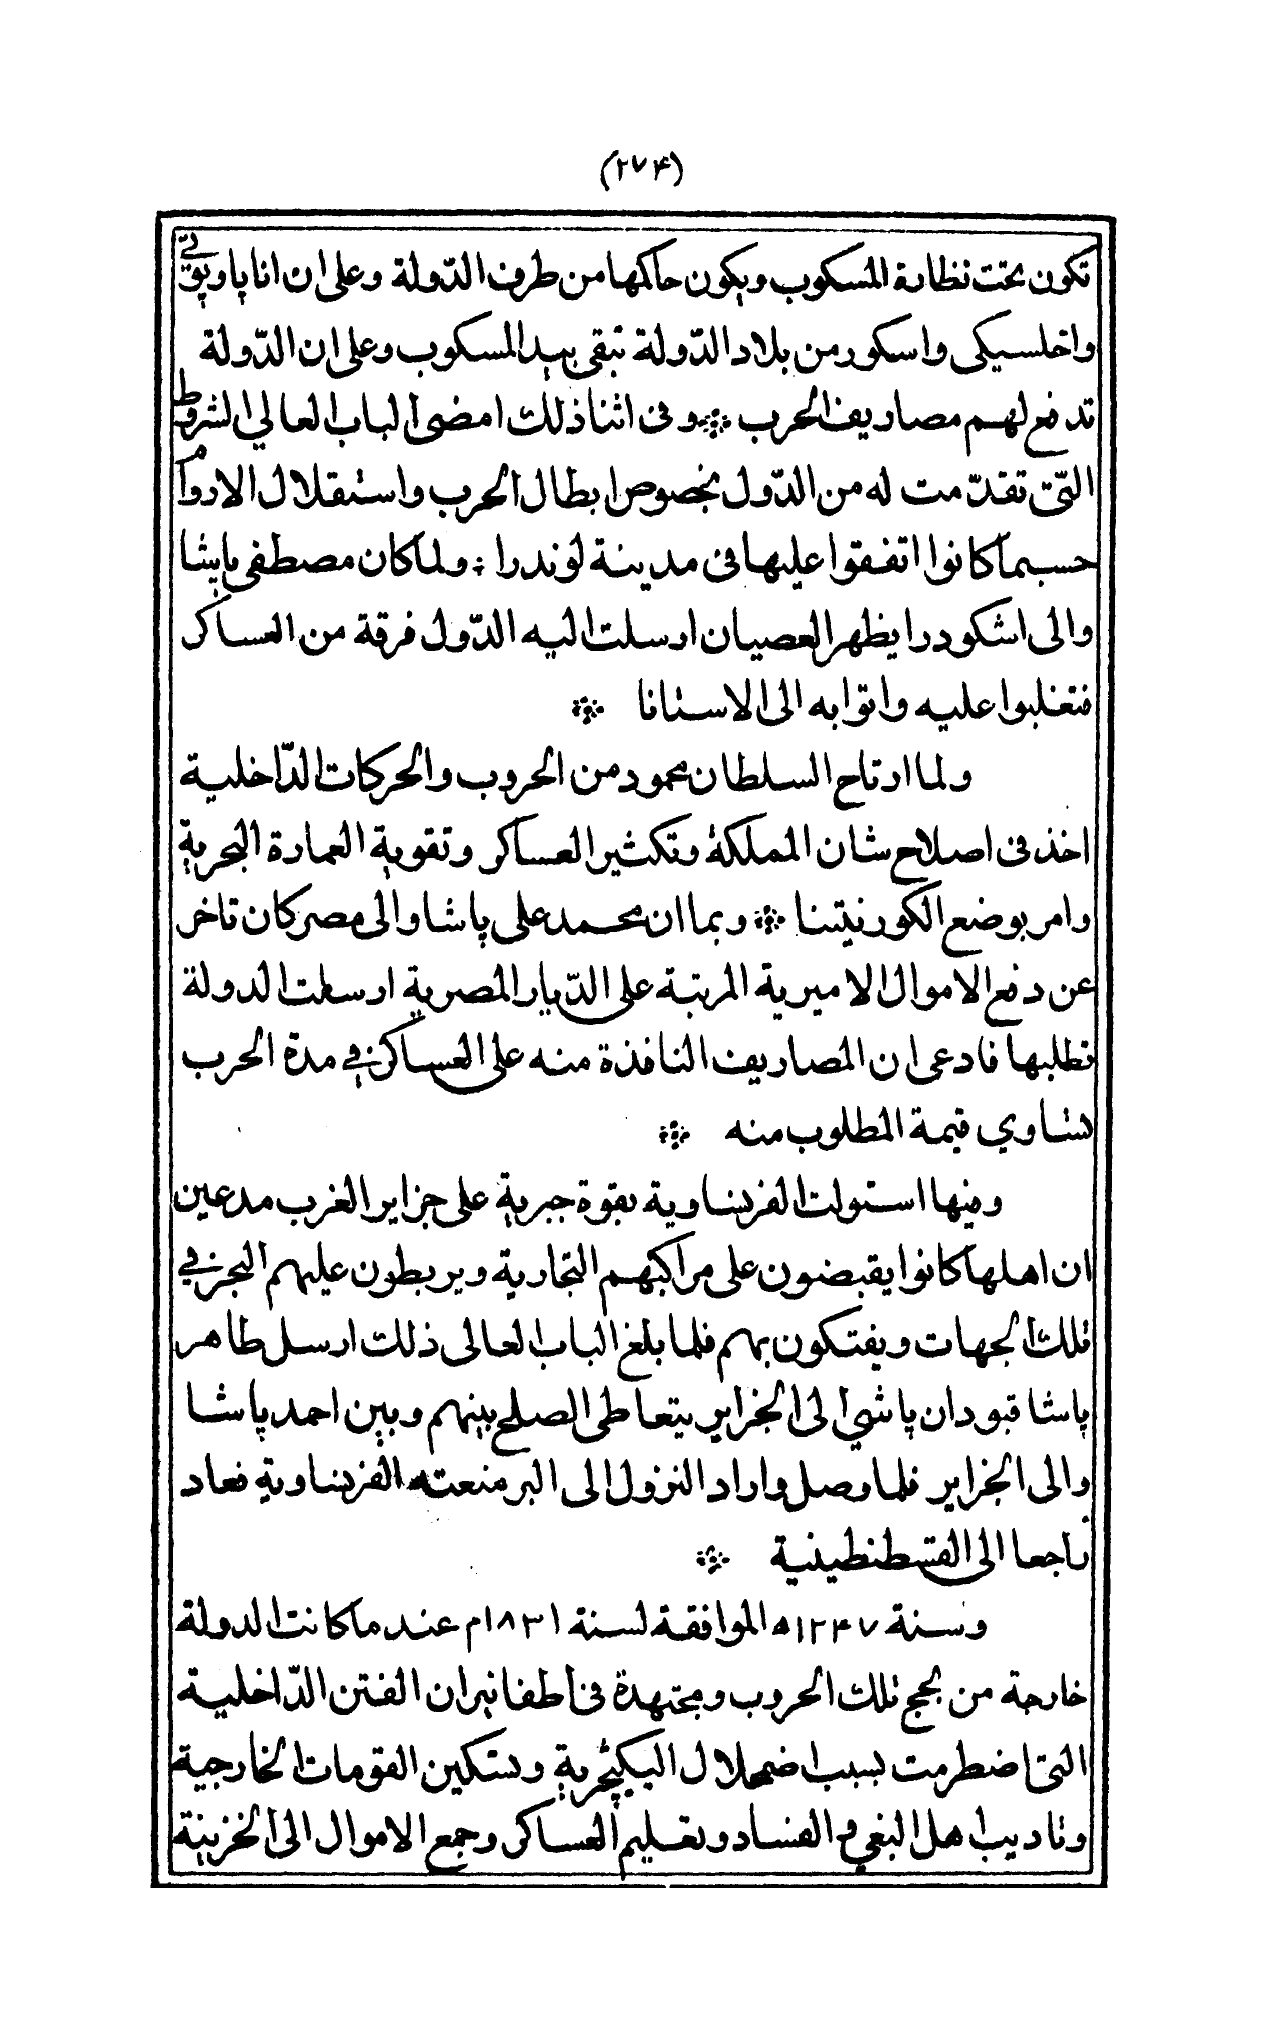 (٢٧۴)
تكون تحت نظارة المسكوب ويكون حاكمها من طرف الدّولة وعلى ان اناپا وپوتي
واخلسيكى واسكور من بلاد الدّولة تبقى بيد المسكوب وعلى ان الدّولة
تدفع لهم مصاريف الحرب ❊ وفى اثنا ذلك امضى الباب العالي الشروط
التّى تقدّمت له من الدّول بخصوص ابطال الحرب واستقلال الاروام
حسبما كانوا اتفقوا عليها فى مدينة لوندرا ؛ ولما كان مصطفى پايشا
والى اشكودرا يظهر العصيان ارسلت اليه الدّول فرقة من العساكر
فتغلبوا عليه واتوا به الى الاستانا ❊
ولما ارتاح السلطان محمود من الحروب والحركات الدّاخلية
اخذ فى اصلاح شان المملكة وتكثير العساكر وتقوية العمارة البحرية
وامر بوضع الكورنيتنا ❊ وبما ان محمد على پاشا والى مصر كان تاخر
عن دفع الاموال الاميرية المرتبة على الدّيار المصرية ارسلت الدولة
تطلبها فادعى ان المصاريف النافذة منه على العساكر في مدة الحرب
تساوي قيمة المطلوب منه ❊
وفيها استولت الفرنساوية بقوة جبرية على جزاير الغرب مدعين
ان اهلها كانوا يقبضون على مراكبهم التجارية ويربطون عليهم البحر في
تلك الجهات ويفتكون بهم فلما بلغ الباب العالى ذلك ارسل طاهر
پاشا قبودان پاشي الى الجزاير يتعاطى الصلح بينهم وبين احمد پاشا
والى الجزاير فلما وصل واراد النزول الى البر منعته الفرنساوية فعاد
راجعا الى القسطنطينية ❊
وسنة ١٢۴٧ه الموافقة لسنة ١٨٣١م عند ما كانت الدولة
خارجة من لجج تلك الحروب ومجتهدة فى اطفا نيران الفتن الدّاخلية
التى اضطرمت بسبب اضمحلال اليكيچرية وتسكين القومات الخارجية
وتاديب اهل البغي والفساد وتعليم العساكر وجمع الاموال الى الخزينة